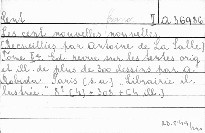 Cent I a 36936
Les cent nouvelles nouvelles,
(Recueillies par Antoine de la Salle)
Tome II. Ed. revue sur les textes orig.
et ill. de plus de 300 dessins par A.
Robida. Paris (s. a.) "Librairie il-
lustrée." 8° [4] + 308 + [4] ll.